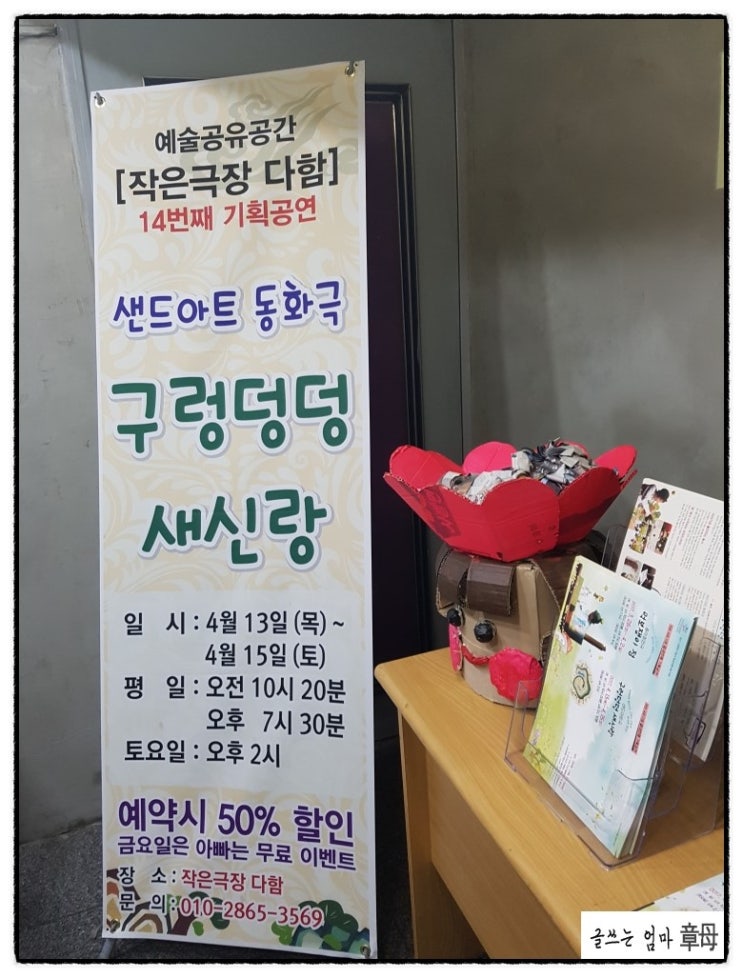 예술공유공간
[작은극장 다함]
14번째 기획공연
샌드아트 동화극
구렁덩덩
새신랑
일 시 : 4월 13일 (목) ~
4월 15일 (토)
평 일 : 오전 10시 20분
오후 7시 30분
토요일 : 오후 2시
예약시 50% 할인
금요일은 아빠는 무료 이벤트
장 소 : 작은극장 다함
문 의 : 010-2865-3569
글쓰는 엄마 章母